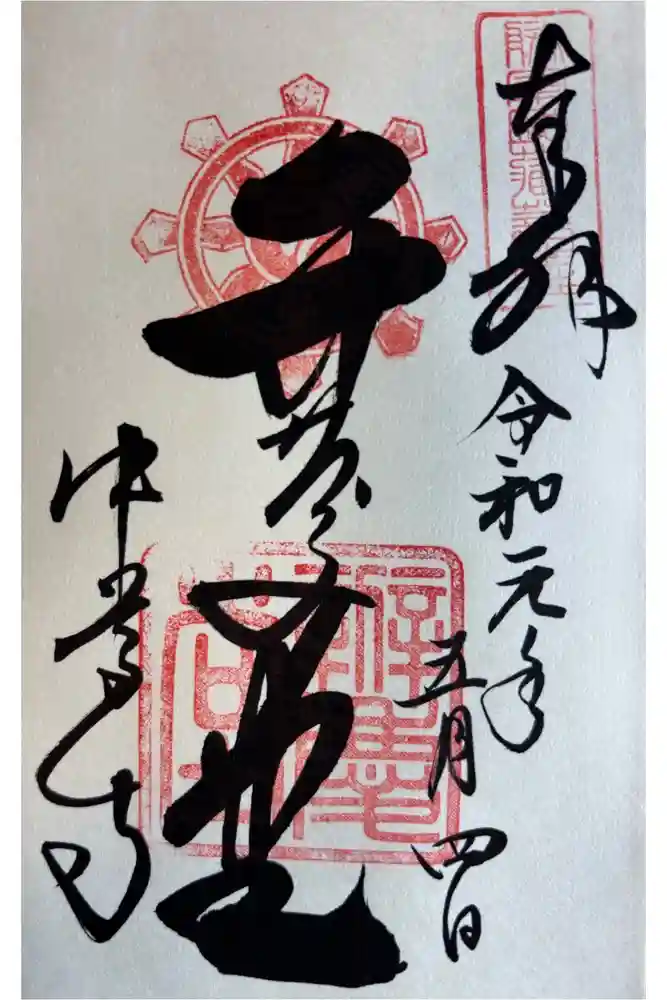 奉拝
令和元年
五月四日
弁慶堂
中尊寺